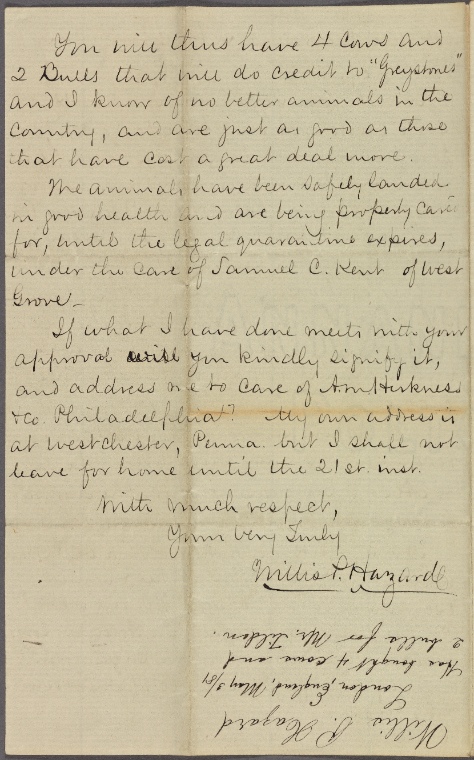 You will thus have 4 Cows and
2 Bulls that will do credit to "Greystones"
and I know of no better animals in the
Country, and are just as good as those
that have cost a great deal more.
The animals have been safely landed
in good health and are being properly cared
for, until the legal quarantine expires,
under the care of Samuel C. Kent of West
Grove—
If what I have done meets with your
approval will you kindly signify it,
and address me to care of Harkness
& Co. Philadelphia? My own address is
at Westchester, Penna. but I shall not
leave for home until the 21st. inst.
With much respect,
Yours very Truly
Willis P. Hazard
Willis P. Hazard
London, England, May 3/81,
Has bought 4 cows and
2 bulls for Mr. Tilden.